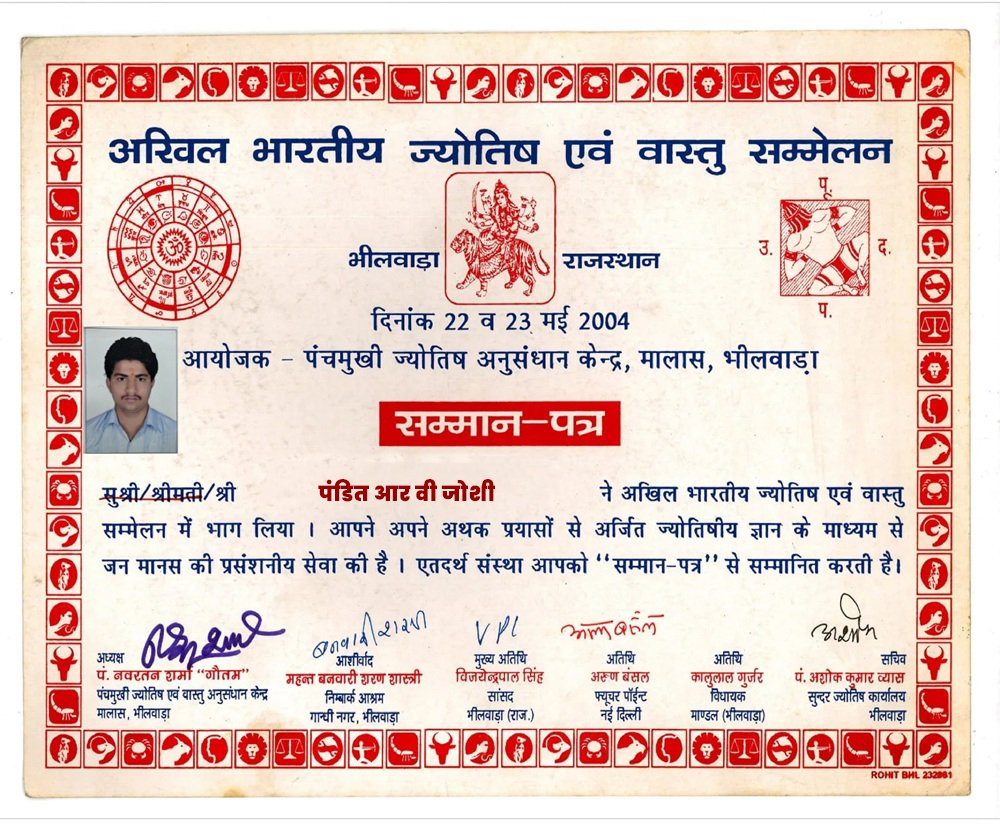 अखिल भारतीय ज्योतिष एवं वास्तु सम्मेलन
भीलवाड़ा राजस्थान
पू.
उ. द.
प.
दिनांक 22 व 23 मई 2004
आयोजक - पंचमुखी ज्योतिष अनुसंधान केन्द्र, मालास, भीलवाड़ा
सम्मान-पत्र
सुश्री/श्रीमती/श्री पंडित आर वी जोशी ने अखिल भारतीय ज्योतिष एवं वास्तु
सम्मेलन में भाग लिया । आपने अपने अथक प्रयासों से अर्जित ज्योतिषीय ज्ञान के माध्यम से
जन मानस की प्रसंशनीय सेवा की है । एतदर्थ संस्था आपको “सम्मान-पत्र” से सम्मानित करती है।
अध्यक्ष
पं. नवरतन शर्मा “गौतम”
पंचमुखी ज्योतिष एवं वास्तु अनुसंधान केन्द्र
मालास, भीलवाड़ा
बनवारी शरण
आशीर्वाद
महन्त बनवारी शरण शास्त्री
निम्बार्क आश्रम
गान्धी नगर, भीलवाड़ा
मुख्य अतिथि
विजयेन्द्रपाल सिंह
सांसद
भीलवाड़ा (राज.)
अतिथि
अरूण बंसल
फ्यूचर पॉईन्ट
नई दिल्ली
अतिथि
कालुलाल गुर्जर
विधायक
माण्डल (भीलवाड़ा)
सचिव
पं. अशोक कुमार व्यास
सुन्दर ज्योतिष कार्यालय
भीलवाड़ा
ROHIT BHL 232861